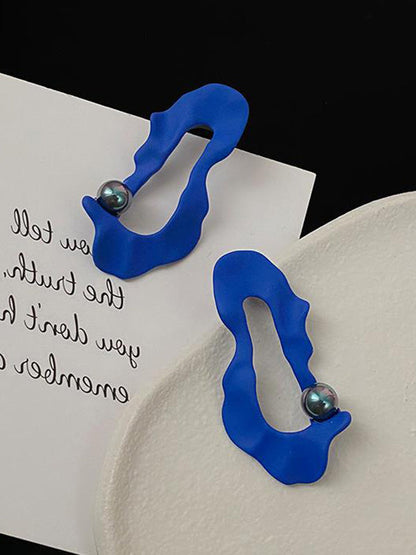 you tell
the truth,
you don't h
emember a